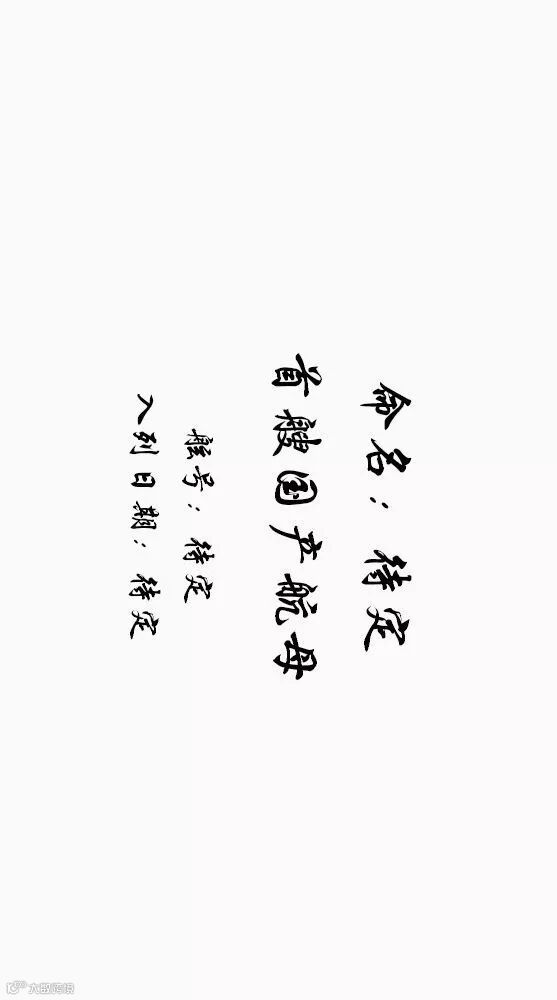 命名：待定
首艘国产航母
舷号：待定
入列日期：待定
大数跨境